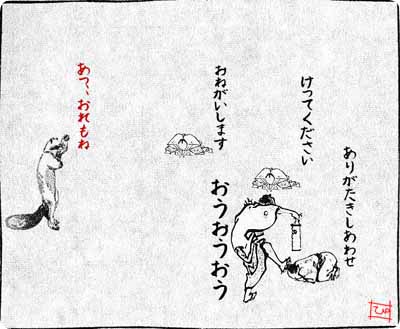 ありがたきしあわせ
けってください
おねがいします
おうおうおう
あっ、おれもね